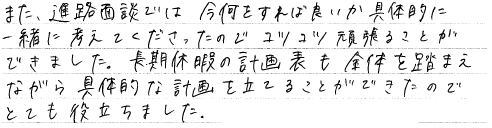 また、進路面談では 今何をすれば良いか具体的に
一緒に考えてくださったので コツコツ頑張ることが
できました。長期休暇の計画表も全体を踏まえ
ながら具体的な計画を立てることができたので
とても役立ちました。